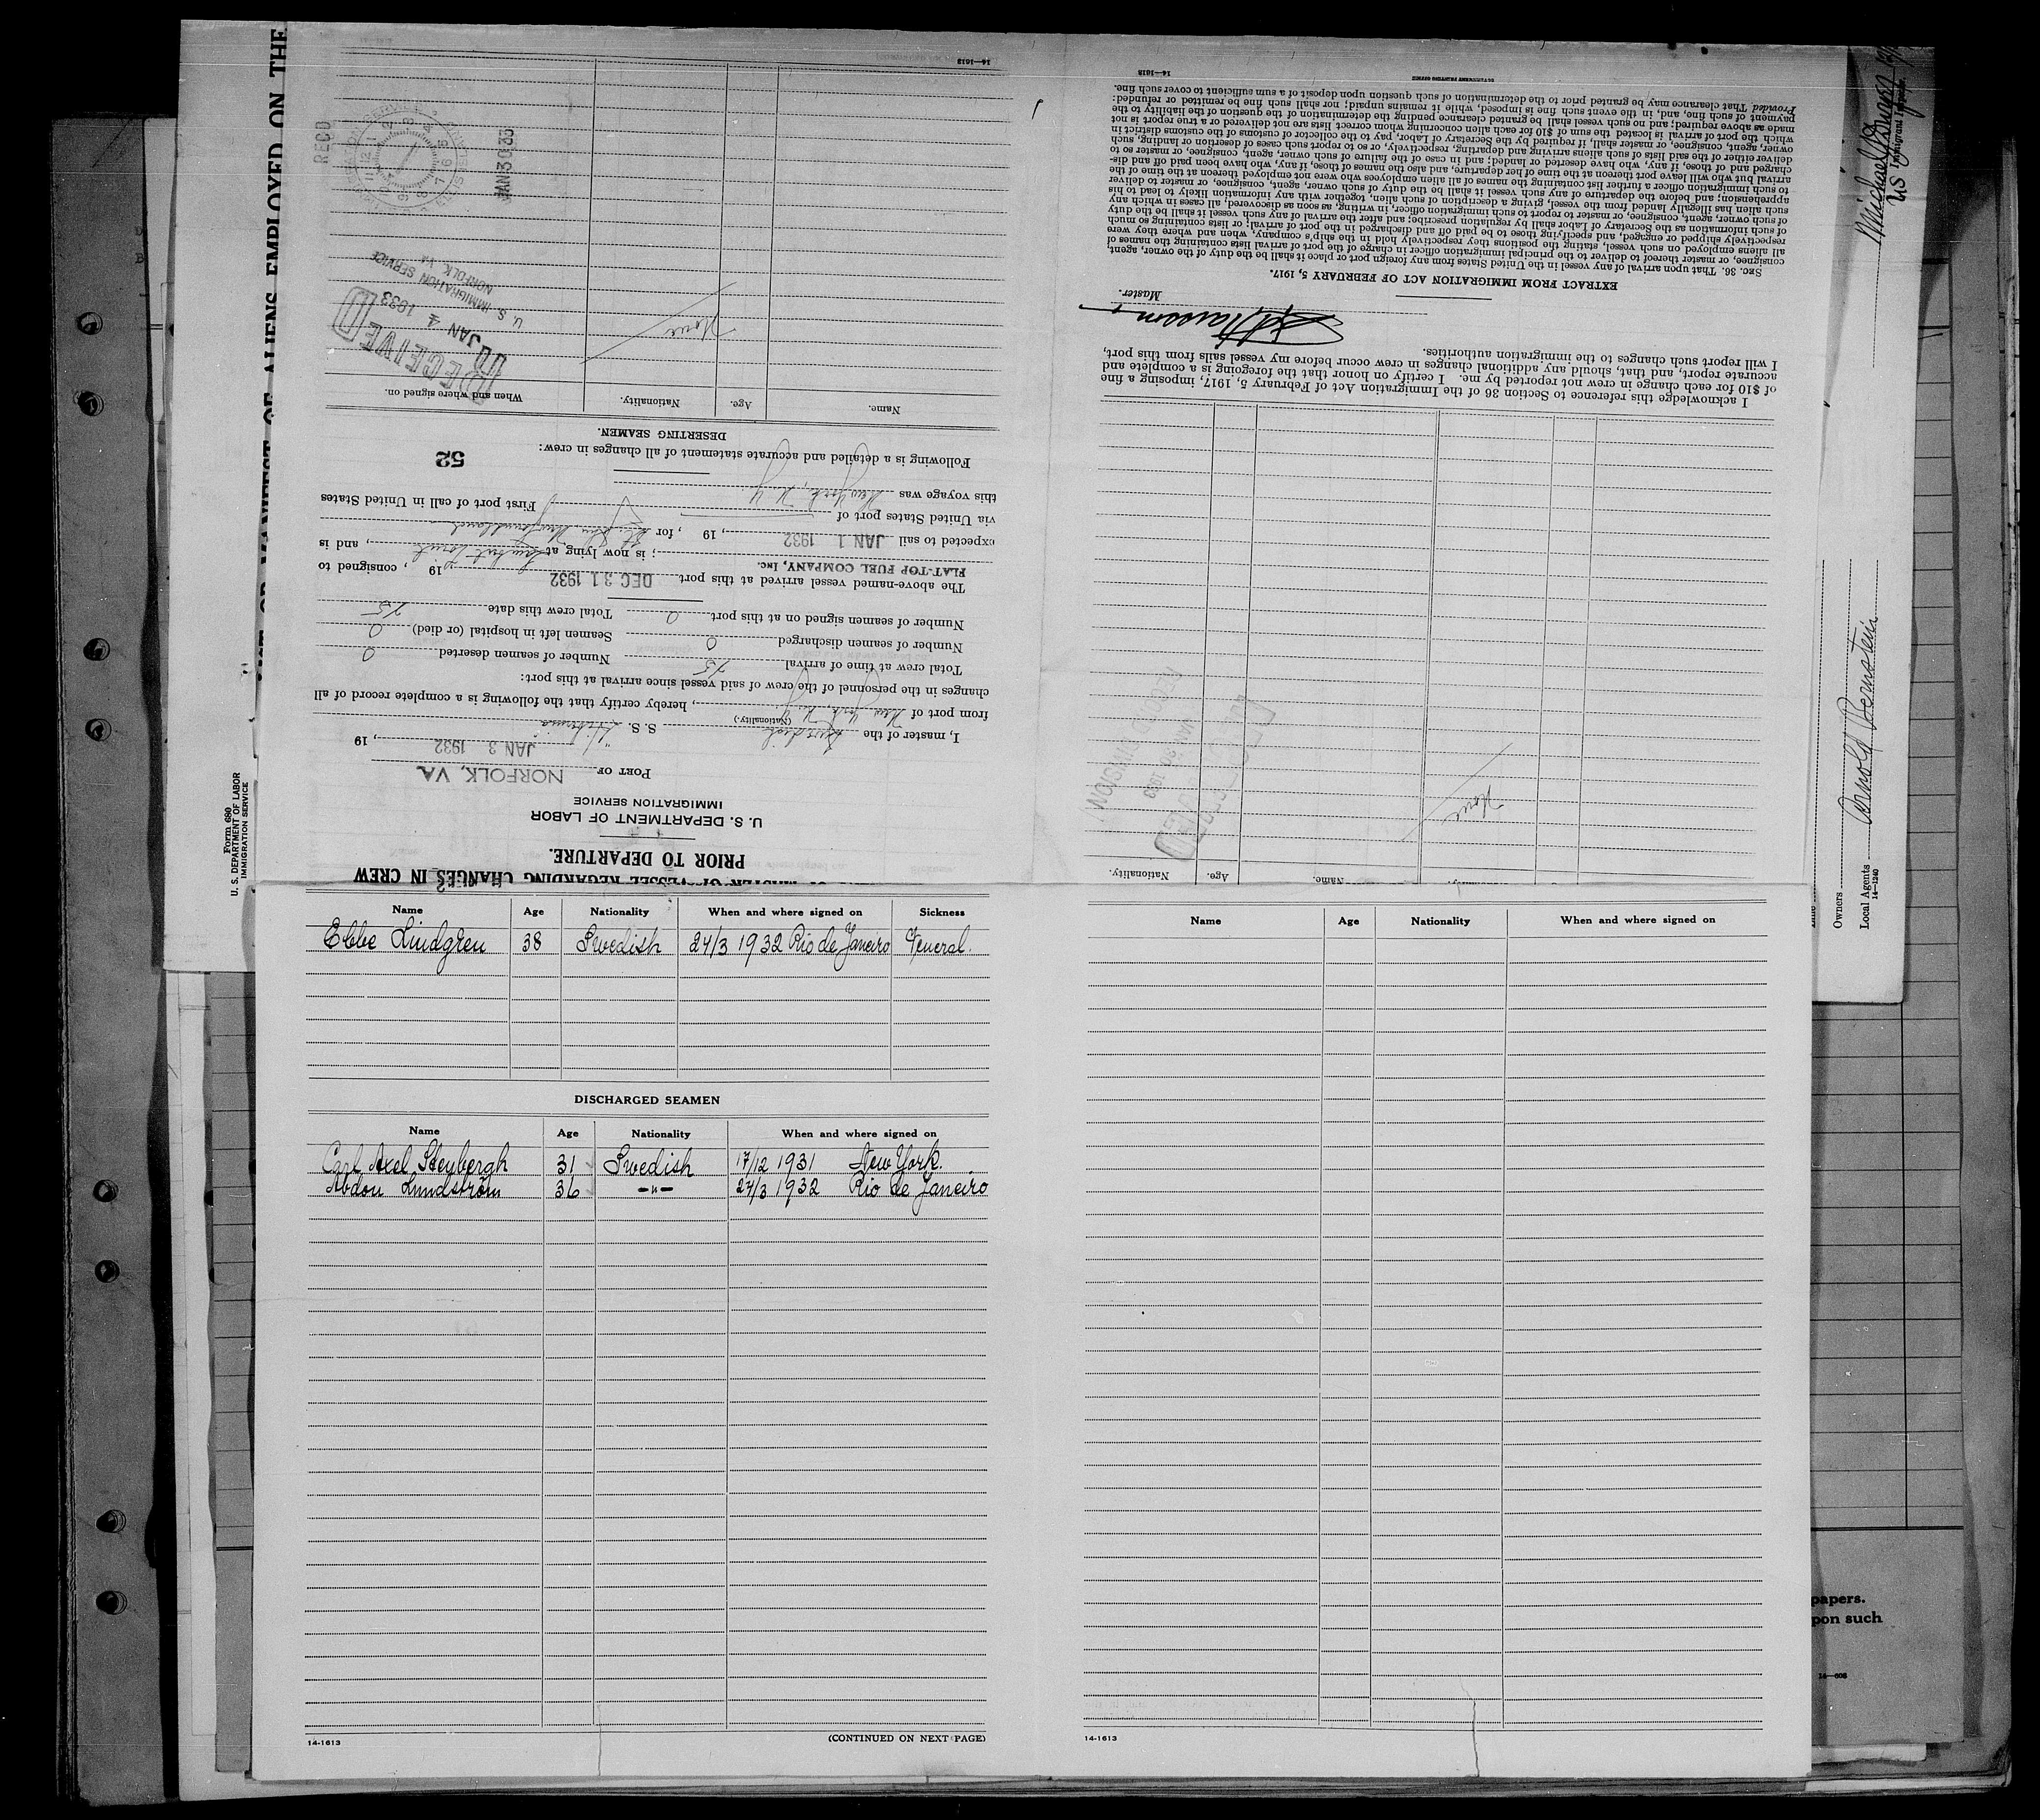 LIST OR MANIFEST OF ALIENS EMPLOYED ON THE
Form 680
U. S. DEPARTMENT OF LABOR
IMMIGRATION SERVICE
PRIOR TO DEPARTURE.
U. S. DEPARTMENT OF LABOR
IMMIGRATION SERVICE
PORT OF NORFOLK, VA.
JAN 3 1932, 19
I, master of the Swedish S. S.
(Nationality.)
from port of New York N. Y., hereby certify that the following is a complete record of all
changes in the personnel of the crew of said vessel since arrival at this port:
Total crew at time of arrival 25 Number of seamen deserted 0
Number of seamen discharged 0 Seamen left in hospital (or died) 0
Number of seamen signed on at this port 0 Total crew this date 25
The above-named vessel arrived at this port DEC 31 1932 19 , consigned to
FLAT-TOP FUEL COMPANY, Inc. ; is now lying at Lambert Point, and is
expected to sail JAN 1 1932, 19 , for Newfoundland
via United States port of First port of call in United States
this voyage was New York, N. Y.
Following is a detailed and accurate statement of all changes in crew:
52
DESERTING SEAMEN.
Name. Age. Nationality. When and where signed on.
None
RECEIVED
JAN 4 1933
U. S. IMMIGRATION SERVICE
NORFOLK, VA.
JAN 30 33
REC'D
14—1613
Name. Age. Nationality.
None
I acknowledge this reference to Section 36 of the Immigration Act of February 5, 1917, imposing a fine
of $10 for each change in crew not reported by me. I certify on honor that the foregoing is a complete and
accurate report, and that, should any additional changes in crew occur before my vessel sails from this port,
I will report such changes to the immigration authorities.
Master.
EXTRACT FROM IMMIGRATION ACT OF FEBRUARY 5, 1917.
SEC. 36. That upon arrival of any vessel in the United States from any foreign port or place it shall be the duty of the owner, agent,
consignee, or master thereof to deliver to the principal immigration officer in charge of the port of arrival lists containing the names of
all aliens employed on such vessel, stating the positions they respectively hold in the ship's company, when and where they were
respectively shipped or engaged, and specifying those to be paid off and discharged in the port of arrival; or lists containing so much
of such information as the Secretary of Labor shall by regulation prescribe; and after the arrival of any such vessel it shall be the duty
of such owner, agent, consignee, or master to report to such immigration officer, in writing, as soon as discovered, all cases in which any
such alien has illegally landed from the vessel, giving a description of such alien, together with any information likely to lead to his
apprehension; and before the departure of any such vessel it shall be the duty of such owner, agent, consignee, or master to deliver
to such immigration officer a further list containing the names of all alien employees who were not employed thereon at the time of the
arrival but who will leave port thereon at the time of her departure, and also the names of those, if any, who have been paid off and dis-
charged and of those, if any, who have deserted or landed; and in case of the failure of such owner, agent, consignee, or master so to
deliver either of the said lists of such aliens arriving and departing, respectively, or so to report such cases of desertion or landing, such
owner, agent, consignee, or master, shall, if required by the Secretary of Labor, pay to the collector of customs of the customs district in
which the port of arrival is located the sum of $10 for each alien concerning whom correct lists are not delivered or a true report is not
made as above required; and no such vessel shall be granted clearance pending the determination of the question of the liability to the
payment of such fine, and, in the event such fine is imposed, while it remains unpaid; nor shall such fine be remitted or refunded:
Provided That clearance may be granted prior to the determination of such question upon deposit of a sum sufficient to cover such fine.
14—1613
US Immigrant Inspector.
Owners
Local Agents Arnold Bernstein
14—1240
Name Age Nationality When and where signed on Sickness
Ebbe Lindgren 38 Swedish 24/3 1932 Rio de Janeiro Veneral.
DISCHARGED SEAMEN
Name Age Nationality When and where signed on
Carl Axel Stenbergh 31 Swedish 17/12 1931 New York.
Abdon Lundström 36 -"- 24/3 1932 Rio de Janeiro
14-1613
(CONTINUED ON NEXT PAGE)
Name Age Nationality When and where signed on
14-1613
papers.
pon such
14—608